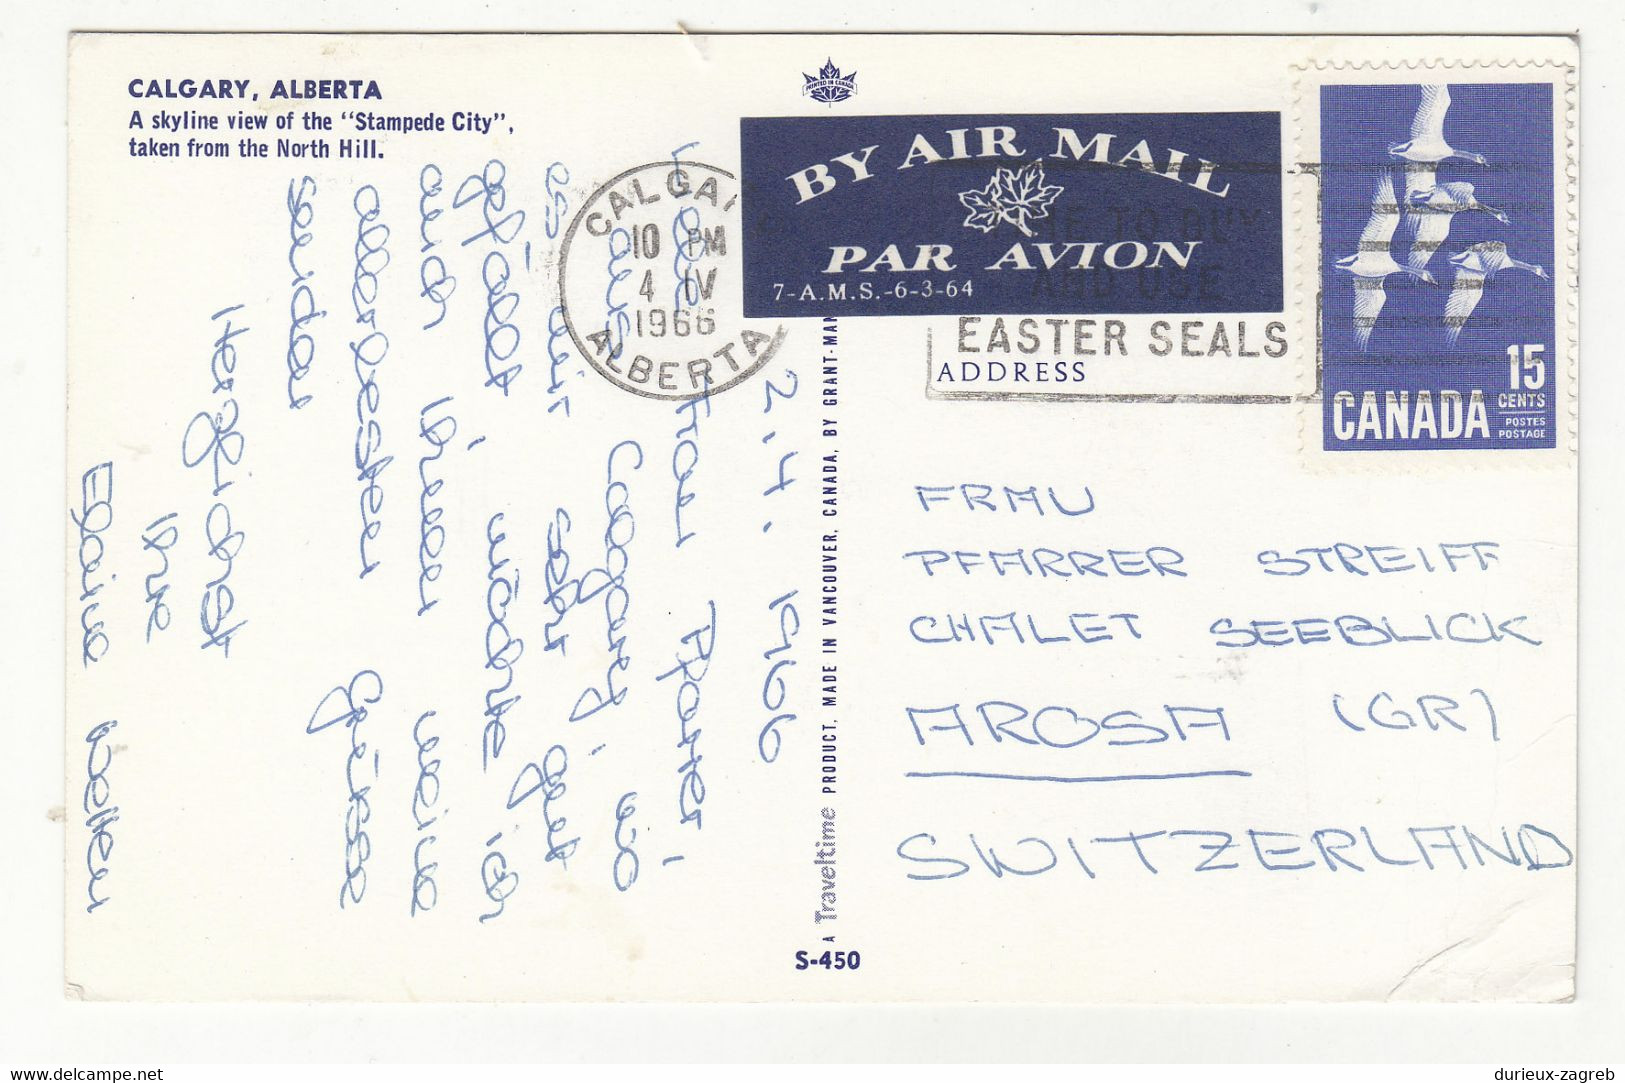 CALGARY, ALBERTA
A skyline view of the "Stampede City",
taken from the North Hill.
PRINTED IN CANADA
BY AIR MAIL
PAR AVION
7-A.M.S.-6-3-64
CALGARY
10 PM
4 IV
1966
ALBERTA
TO BUY
AND USE
EASTER SEALS
ADDRESS
15
CENTS
POSTES
POSTAGE
CANADA
2.4.1966
Liebe Frau Pfarrer,
aus Calgary, wo
es mir sehr gut
gefällt, möchte ich
auch Ihnen meine
allerbesten Grüsse
senden
Herzlichst
Ihre
FRAU
PFARRER STREIFF
CHALET SEEBLICK
AROSA (GR)
SWITZERLAND
A Traveltime PRODUCT, MADE IN VANCOUVER, CANADA, BY GRANT-MAN
S-450
durieux-zagreb
delcampe.net